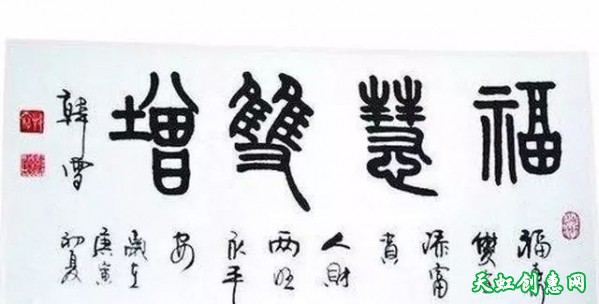 福慧雙增
福
雙
添富
貴
人財
两旺
永平
安
歲在
庚寅
初夏
韓雪
天虹创意网